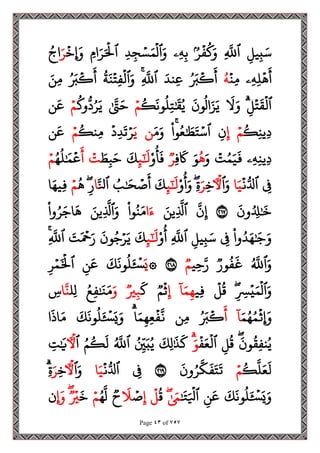 سَبِيلِ اِ۬للَّهِ وَكُفْرُۢ بِهِۦ وَالْمَسْجِدِ اِ۬لْحَرَامِ وَإِخْرَاجُ
أَهْلِهِۦ مِنْهُ أَكْبَرُ عِندَ اَ۬للَّهِ ۚ وَالْفِتْنَةُ أَكْبَرُ مِنَ
اَ۬لْقَتْلِ ۗ وَلَا يَزَالُونَ يُقَٰتِلُونَكُمْ حَتَّىٰ يَرُدُّوكُمْ عَن
دِينِكُمْ إِنِ اِ۪سْتَطَٰعُواْ ۚ وَمَن يَرْتَدِدْ مِنكُمْ عَن
دِينِهِۦ فَيَمُتْ وَهُوَ كَافِرٌ فَأُوْلَٰٓئِكَ حَبِطَتْ أَعْمَٰلُهُمْ
فِي اِ۬لدُّنْيَا وَالْأٓخِرَةِ ۖ وَأُوْلَٰٓئِكَ أَصْحَٰبُ اُ۬لنَّارِ ۖ هُمْ فِيهَا
خَٰلِدُونَ ٢١٧ إِنَّ اَ۬لَّذِينَ ءَامَنُواْ وَالَّذِينَ هَاجَرُواْ
وَجَٰهَدُواْ فِي سَبِيلِ اِ۬للَّهِ أُوْلَٰٓئِكَ يَرْجُونَ رَحْمَتَ اَ۬للَّهِ ۚ
وَاللَّهُ غَفُورٌ رَّحِيمٌ ٢١٨ ۞ يَسْـَٔلُونَكَ عَنِ اِ۬لْخَمْرِ
وَالْمَيْسِرِ ۖ قُلْ فِيهِمَا إِثْمٌ كَبِيرٌ وَمَنَٰفِعُ لِلنَّاسِ
وَإِثْمُهُمَا أَكْبَرُ مِن نَّفْعِهِمَا ۗ وَيَسْـَٔلُونَكَ مَاذَا
يُنفِقُونَ ۖ قُلِ اِ۬لْعَفْوُ ۗ كَذَٰلِكَ يُبَيِّنُ اُ۬للَّهُ لَكُمُ اُ۬لْأٓيَٰتِ
لَعَلَّكُمْ تَتَفَكَّرُونَ ٢١٩ فِي اِ۬لدُّنْيَا وَالْأٓخِرَةِ ۗ
وَيَسْـَٔلُونَكَ عَنِ اِ۬لْيَتَٰمَىٰ ۖ قُلْ إِصْلَاحٌ لَّهُمْ خَيْرٌ ۖ وَإِن
Page 43 of 757